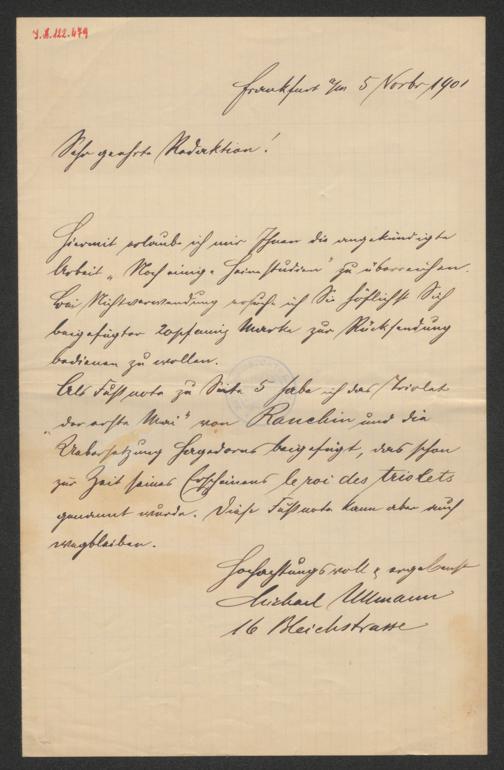 J.N. 122.479
Frankfurt a/m 5 Novbr 1901
Sehr geehrte Redaktion!
Hiermit erlaube ich mir Ihnen die angekündigte
Arbeit „Noch einige Heinestudien" zu überreichen.
Bei Nichtverwendung ersuche ich Sie höflichst Sich
beigefügter 20pfennig Marke zur Rücksendung
bedienen zu wollen.
Als Fußnote zu Seite 5 habe ich das Triolet
„der erste Mai" von Ranchin und die
Uebersetzung Hagedorns beigefügt, das schon
zur Zeit seines Erscheinens le roi des triolets
genannt wurde. Diese Fußnote kann aber auch
wegbleiben.
Hochachtungsvoll & ergebenst
Michael Ullmann
16 Bleichstrasse